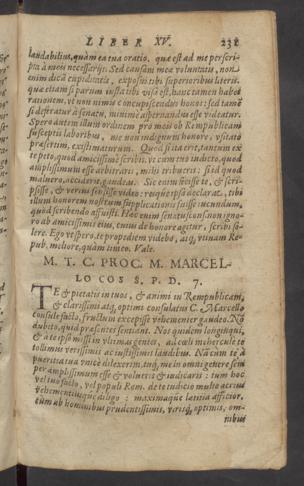 LIBER XV. 231
laudabilius, quàm ea tua oratio, quæ est ad me perscri-
pta à meis necessarijs. Sed causam meæ voluntatis, non
enim dicā cupiditatis, exposui tibi superioribus literis.
quæ etiam si parum iusta tibi visa est, hanc tamen habet
rationem, vt non nimis concupiscendus honos: sed tamē
si deferatur à senatu, minimè aspernandus esse videatur.
Spero autem illum ordinem pro meis ob Rempublicam
susceptis laboribus, me non indignum honore, vsitato
præsertim, existimaturum. Quod si ita erit, tantum ex
te peto, quod amicissimè scribis, vt cum tuo iudicio, quod
amplissimum esse arbitraris, mihi tribueris: si id quod
maluero, acciderit, gaudeas. Sic enim fecisse te, & scri-
psisse, & verius sensisse video: resque ipsa declarat, tibi
illum honorem nostrum supplicationis fuisse iucundum,
quod scribendo affuisti. Hæc enim senatusconsulta non igno-
ro ab amicissimis eius, cuius de honore agitur, scribi so-
lere. Ego vt spero, te propediem videbo, atq, vtinam Re-
pub. meliore, quàm timeo. Vale.
M. T. C. PROC. M. MARCEL-
LO COS S. P. D. 7.
TE & pietatis in tuos, & animi in Rempublicam,
& clarissimi atq, optimi consulatus C. Marcello
consule facto, fructum excepisse vehementer gaudeo. Nō
dubito, quid præsentes sentiant. Nos quidem longinqui,
& à te ipso missi in vltimas gentes, ad cœlū mehercule te
tollimus verissimis ac iustissimis laudibus. Nā cum te à
pueritia tua vnicè dilexerim, tuq, me in omni genere semper
amplissimum esse & volueris & iudicaris: tum hoc
vel tuo facto, vel populi Rom. de te iudicio multo acrius
vehementiusque diligo: maximaque lætitia afficior,
cùm ab hominibus prudentissimis, virisq, optimis, om-
nibus